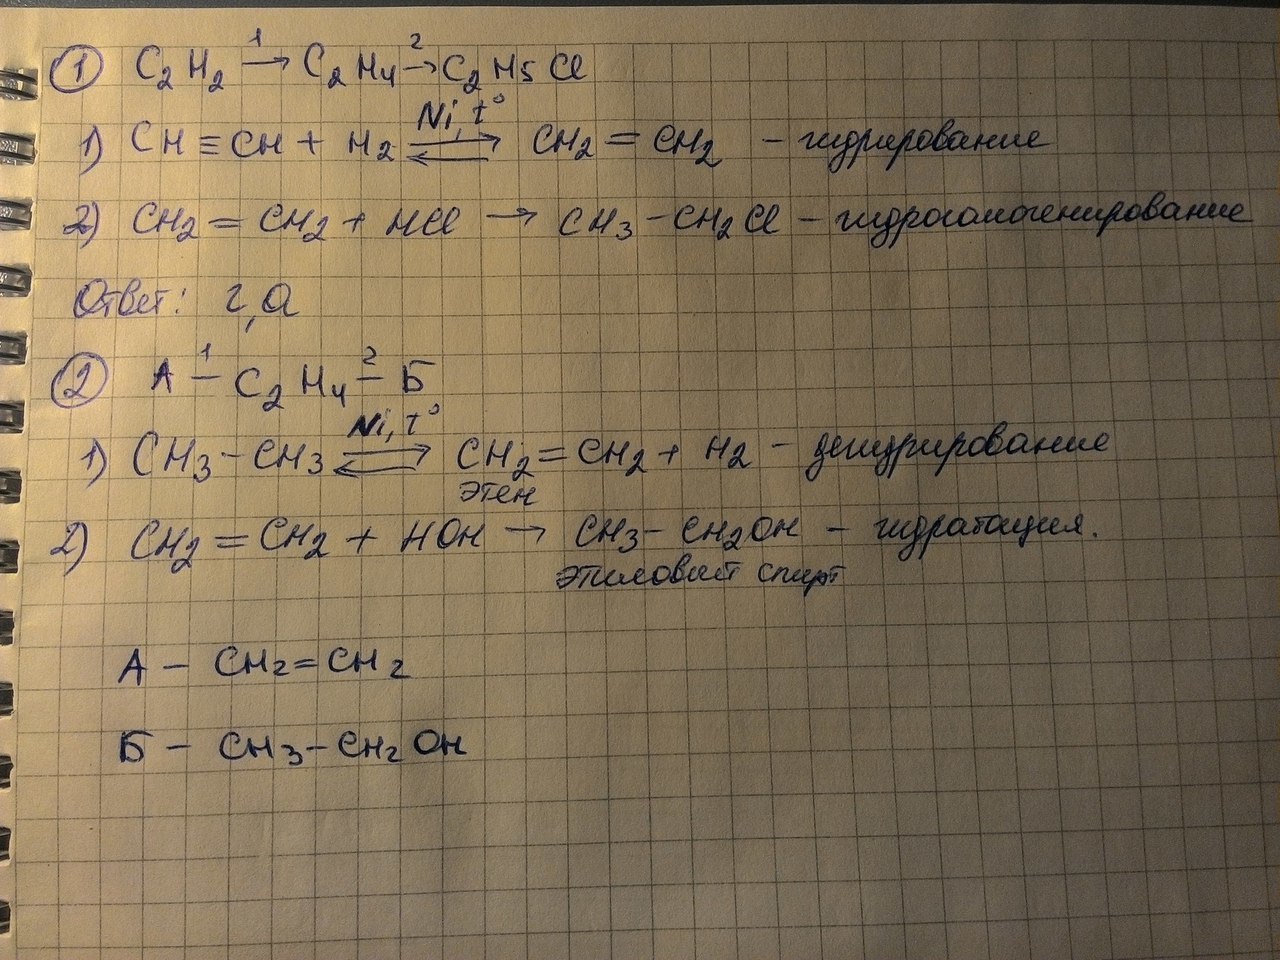 ① C₂H₂ →¹ C₂H₄ →² C₂H₅Cl
Ni, t°
1) CH≡CH + H₂ ⇌ CH₂=CH₂ - гидрирование
2) CH₂=CH₂ + HCl → CH₃-CH₂Cl - гидрогалогенирование
Ответ: г, а
② А -¹ C₂H₄ -² Б
Ni, t°
1) CH₃-CH₃ ⇌ CH₂=CH₂ + H₂ - дегидрирование
этен
2) CH₂=CH₂ + HOH → CH₃-CH₂OH - гидратация.
этиловый спирт
А - CH₂=CH₂
Б - CH₃-CH₂OH